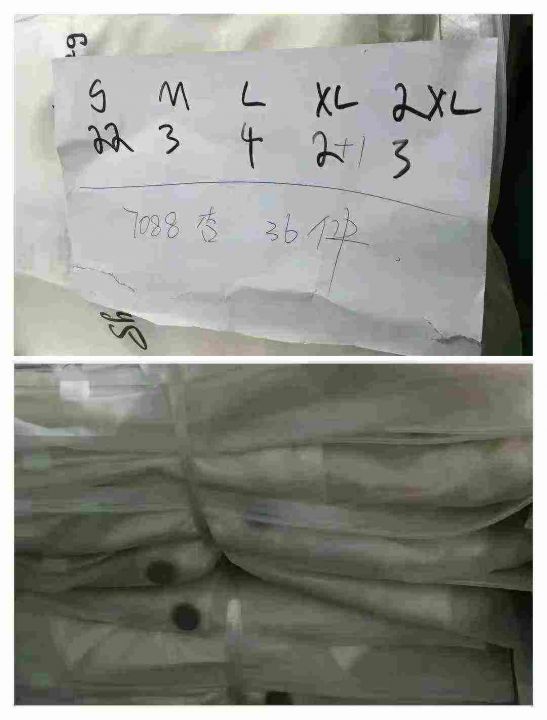 S M L XL 2XL
22 3 4 2+1 3
7088 杏 36件